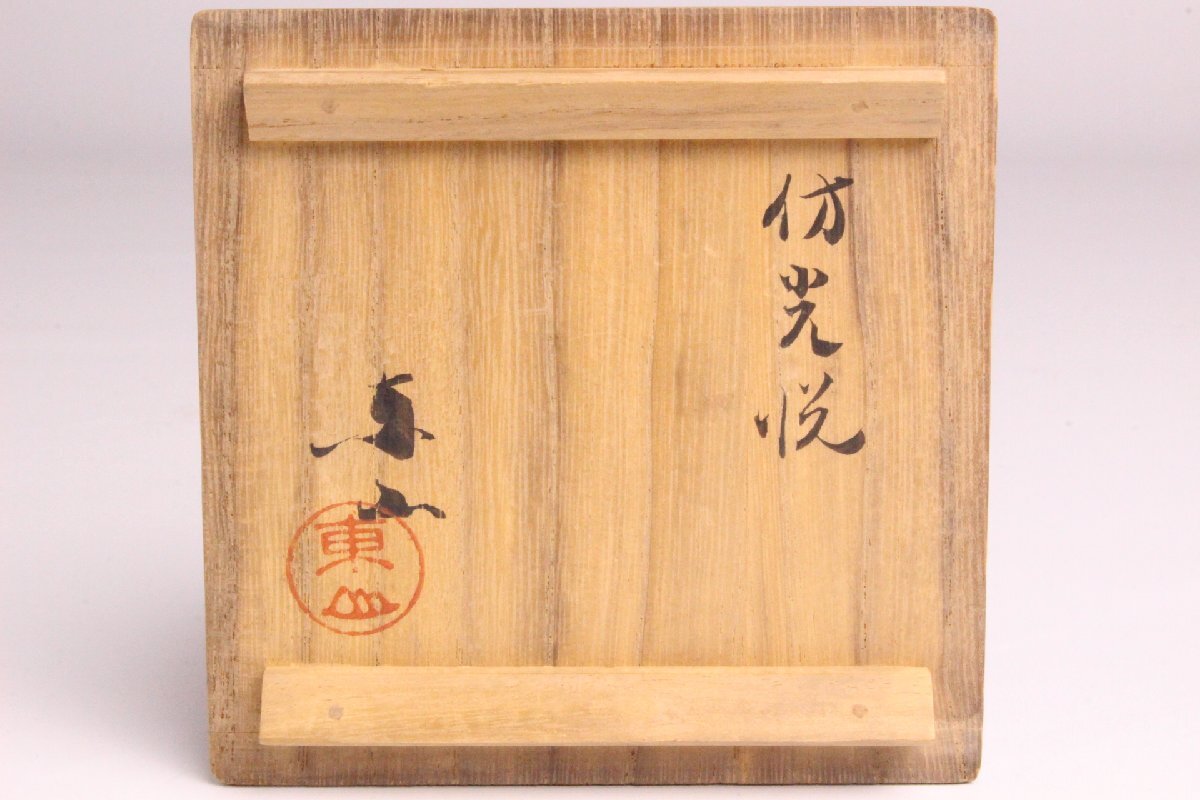 仿光悦
東山
東山